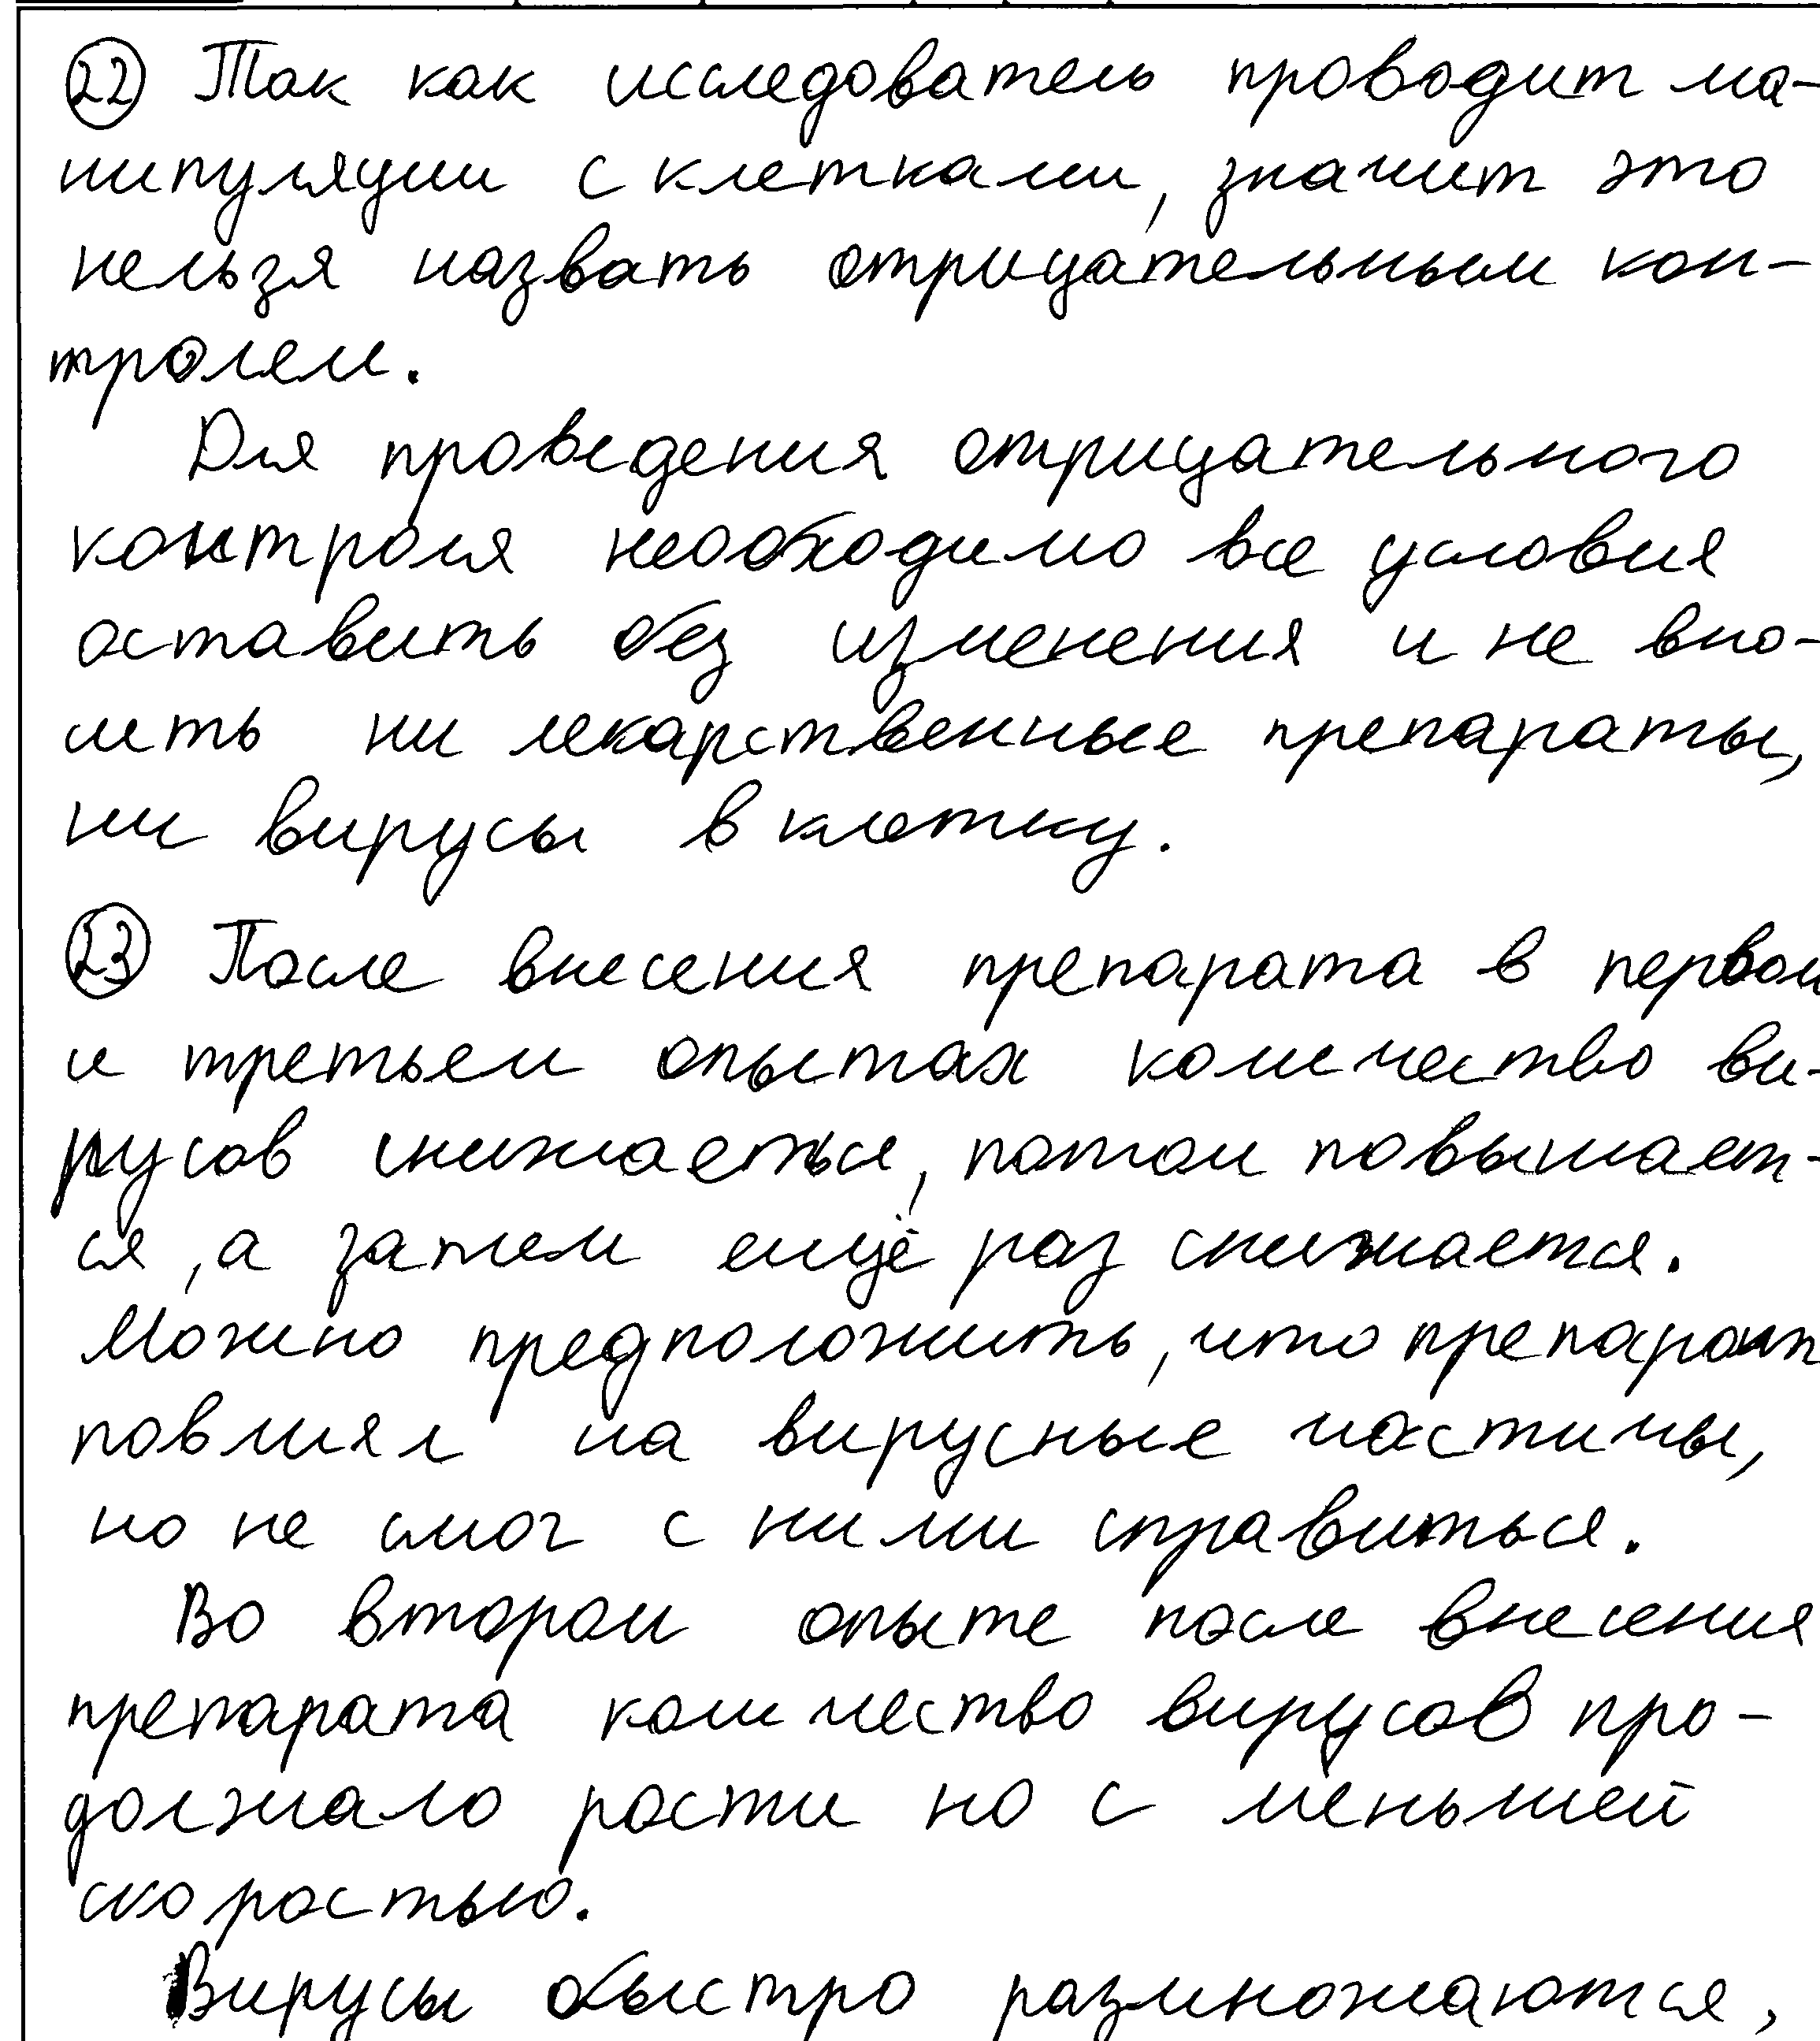 22 Так как исследователь проводит ма-
нипуляции с клетками, значит это
нельзя назвать отрицательным кон-
тролем.
Для проведения отрицательного
контроля необходимо все условия
оставить без изменения и не вно-
сить ни лекарственные препараты,
ни вирусы в клетку.
23 После внесения препарата в первом
и третьем опытах количество ви-
русов снижается, потом повышает-
ся, а затем ещё раз снижается.
Можно предположить, что препарат
повлиял на вирусные частицы,
но не смог с ними справиться.
Во втором опыте после внесения
препарата количество вирусов про-
должало расти но с меньшей
скоростью.
Вирусы быстро размножаются,